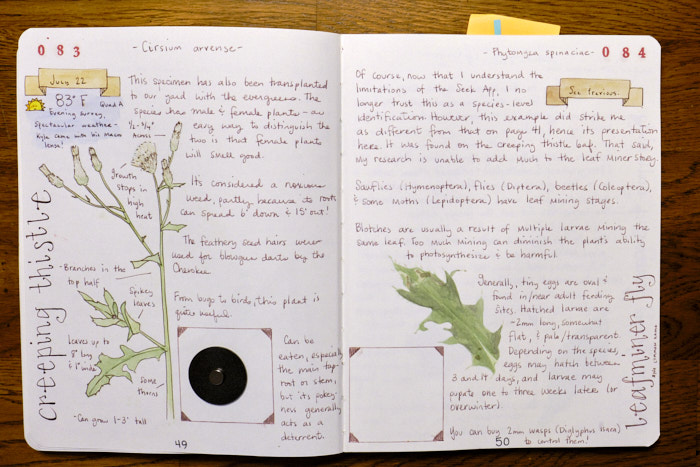 083
- Cirsium arvense -
July 22
83°F Quad A
Evening survey,
Spectacular weather -
Kyle came with his macro
lens!
This specimen has also been transplanted
to our yard with the evergreens. The
species has male & female plants - an
easy way to distinguish the
two is that female plants
will smell good.
½-¾"
across
growth
stops in
high
heat
It's considered a noxious
weed, partly because its roots
can spread 6' down & 15' out!
The feathery seed hairs were
used for blowgun darts by the
Cherokee.
-Branches in the
top half
Spikey
leaves
From bugs to birds, this plant is
quite useful.
Leaves up to
8" long
& 1" wide
Some
thorns
-Can grow 1-3' tall
Can be
eaten, especially
the main tap-
root or stem,
but its pokey-
ness generally
acts as a
deterrent.
creeping thistle
49
084
- Phytomyza spinaciae -
See Previous.
Of course, now that I understand the
limitations of the Seek App, I no
longer trust this as a species-level
identification. However, this example did strike me
as different from that on page 41, hence its presentation
here. It was found on the creeping thistle leaf. That said,
my research is unable to add much to the leaf miner story.
Sawflies (Hymenoptera), flies (Diptera), beetles (Coleoptera),
& some moths (Lepidoptera) have leaf mining stages.
Blotches are usually a result of multiple larvae mining the
same leaf. Too much mining can diminish the plant's ability
to photosynthesize & be harmful.
Generally, tiny eggs are oval &
found in/near adult feeding
sites. Hatched larvae are
~2mm long, somewhat
flat, & pale/transparent.
Depending on the species,
eggs may hatch between
3 and 14 days, and larvae may
pupate one to three weeks later (or
overwinter).
You can buy 2mm wasps (Diglyphus isaea)
to control them!
leafminer fly
50